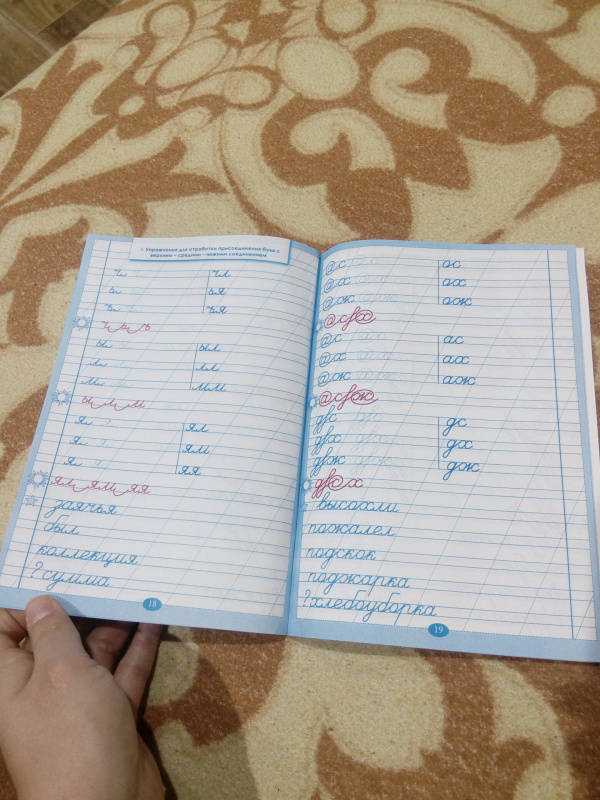 1. Упражнения для отработки присоединения букв с
верхним – средним – нижним соединением.
ч чл
ь ья
ъ ъя
ч ь ъ
ы ыл
л лл
м мм
ы л м
я ял
я ям
я яя
ял ям яя
заячья
был
коллекция
? сумма
18
ас ас
ах ах
аж аж
ас ас
ах ах
аж аж
дс дс
дх дх
дж дж
высохли
пожалел
подскок
поджарка
? хлебоуборка
19